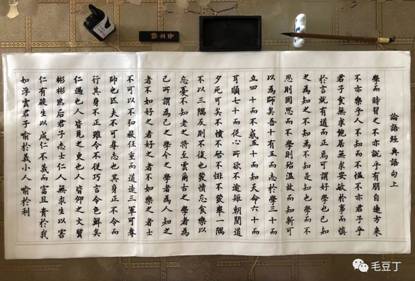 論語經典語句上
學而時習之不亦說乎有朋自遠方來
不亦樂乎人不知而不慍不亦君子乎
君子食無求飽居無求安敏於事而慎
於言就有道而正焉可謂好學也已知
之為知之不知為不知是知也學而不
思則罔思而不學則殆溫故而知新可
以為師矣吾十有五而志於學三十而
立四十而不惑五十而知天命六十而
耳順七十而從心所欲不逾矩朝聞道
夕死可矣不憤不啟不悱不發舉一隅
不以三隅反則不復也發憤忘食樂以
忘憂不知老之將至云爾古之學者為
己今之學者為人知之
者不如好之者好之者不如樂之者士
不可以不弘毅任重而道遠三軍可奪
帥也匹夫不可奪志也其身正不令而
行其身不正雖令不從巧言令色鮮矣
仁過也人皆見之更也人皆仰之文質
彬彬然后君子志士仁人無求生以害
仁有殺生以成仁不義而富且貴於我
如浮雲君子喻於義小人喻於利
毛豆丁